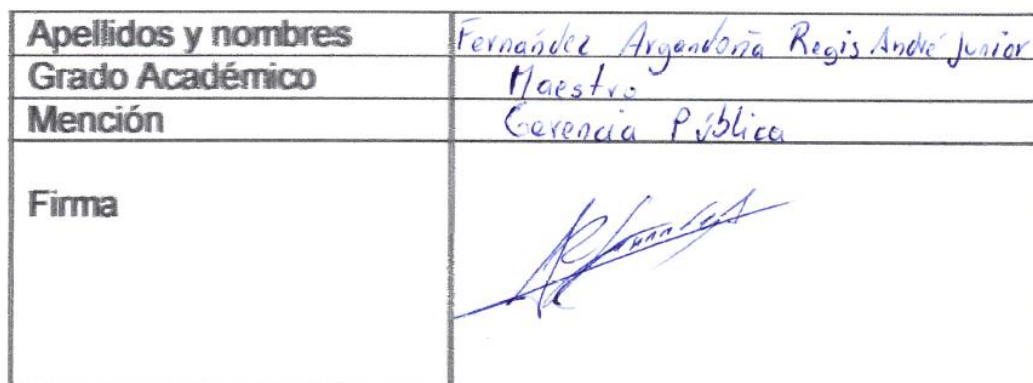 Apellidos y nombres Fernández Argandoña Regis André Junior
Grado Académico Maestro
Mención Gerencia Pública
Firma